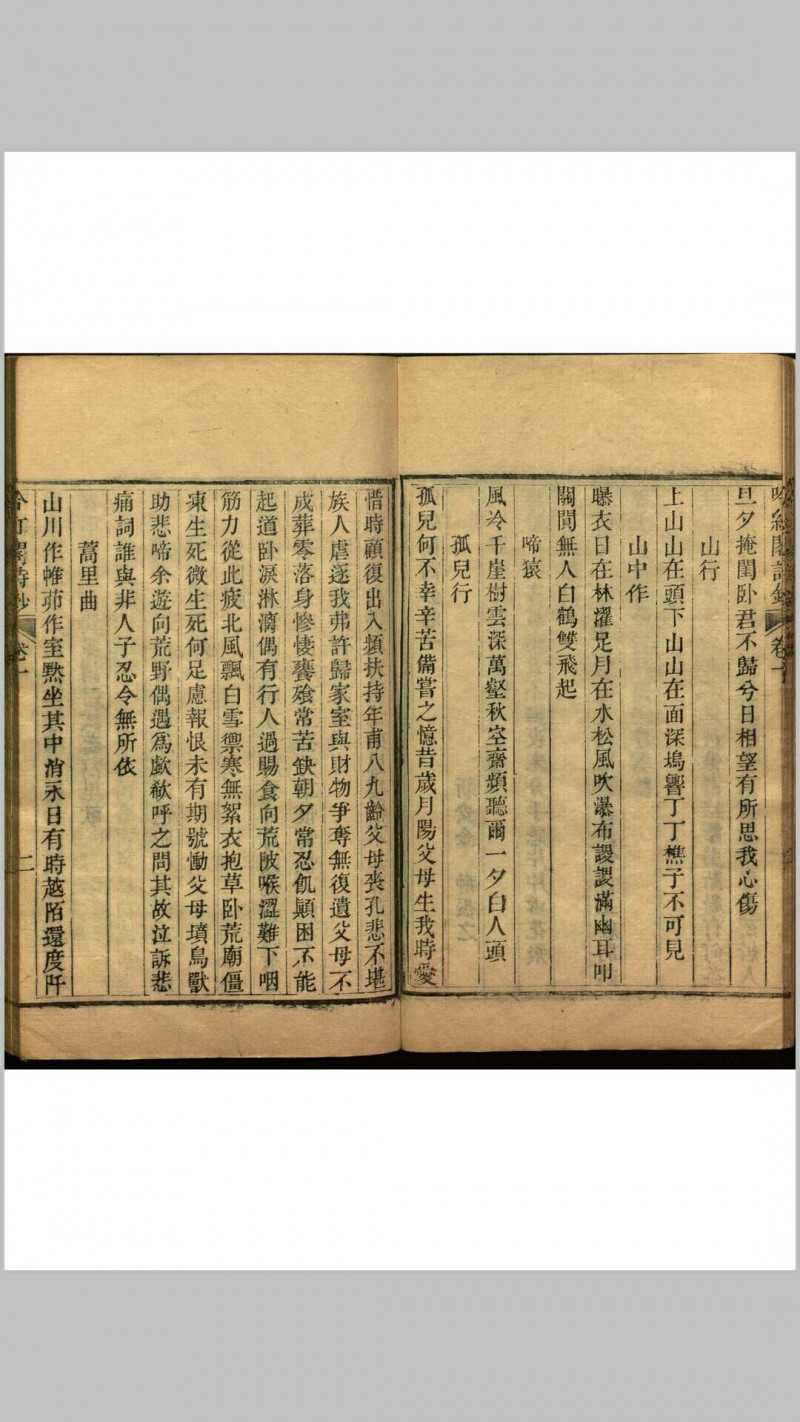 卷一
旦夕掩閨卧君不歸兮日相望有所思我心傷
山行
上山山在頭下山山在面深塢響丁丁樵子不可見
山中作
曝衣日在林濯足月在水松風吹瀑布謖謖滿幽耳叩
關闃無人白鶴雙飛起
啼猿
風冷千崖樹雲深萬壑秋空齋頻聽爾一夕白人頭
孤兒行
孤兒何不幸辛苦備嘗之憶昔歲月陽父母生我時愛
惜時顧復出入頻扶持年甫八九齡父母喪孔悲不堪
族人虐逐我弗許歸家室與財物爭奪無復遺父母不
成葬零落身慘悽饔飱常苦缺朝夕常忍飢顛困不能
起道卧淚淋漓偶有行人過賜食向荒陂喉澀難下咽
筋力從此疲北風飄白雪禦寒無絮衣抱草卧荒廟僵
凍生死微生死何足慮報恨未有期號慟父母墳鳥獸
助悲啼余遊向荒野偶遇為歔欷呼之問其故泣訴悲
痛詞誰與非人子忍令無所依
蒿里曲
山川作帷茆作室默坐其中消永日有時越陌還度阡
卷一
二